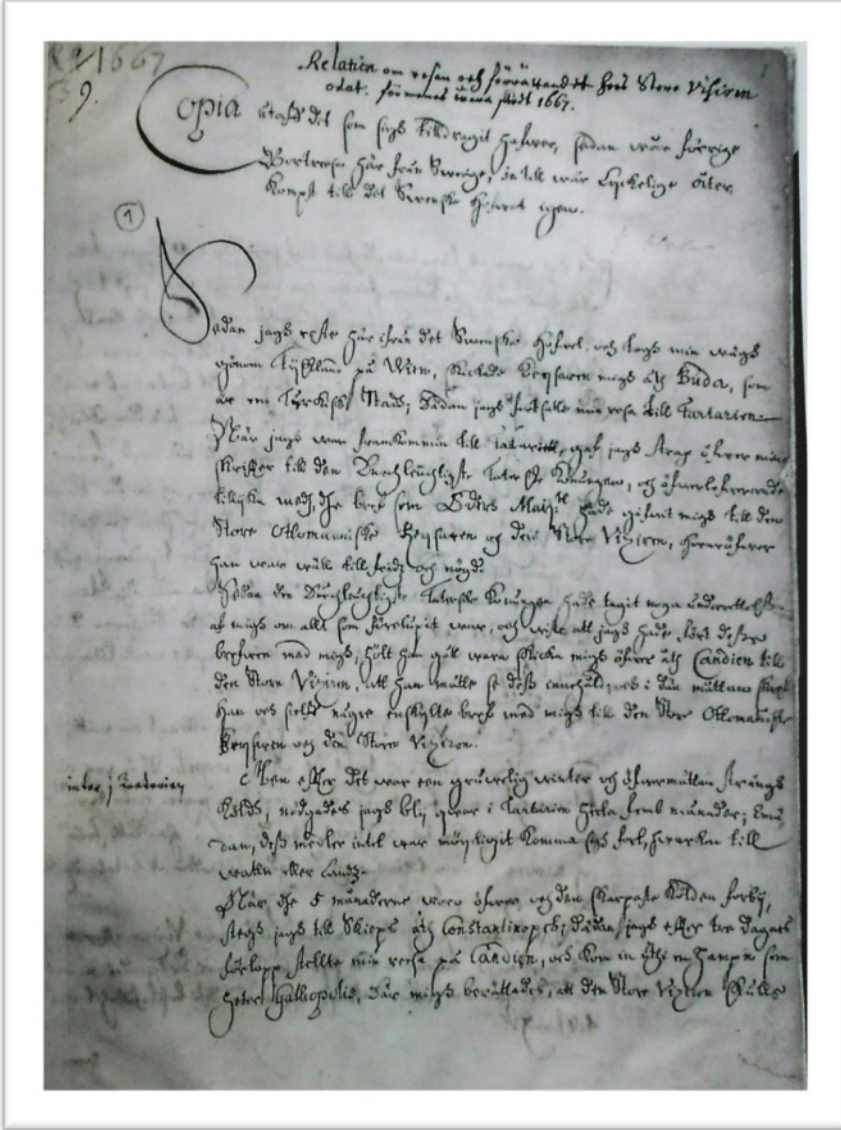 1667
9.
Relation om resan och förrättandet hoos Store Visiren
odat. förmenes wara skedt 1667.
Copia utaf dit som sigh tilldragit hafwer, sedan wår förrige
Bortreesa här från Swerige, in till wår Lyckelige åter
Kompst till det Swenske Hofwet igen.
1
Sedan jagh reste här ifrån det Swenske Hofwet, och togh min wägh
genom Tyskland på Wien, skickade Keysaren migh åth Buda, som
är en Turkisk Stadh; Sedan jagh fortsatte min resa till Tartarien
När jagh war framkommin till Tatariett, gaf jagh strax öfwer mine
skrifter till den Durchleuchtigste Taterske Konungen, och öfwerlefwererade
tillijka medh, the bref som Eders Maij:tt hade gifwit migh till den
Store Ottomanniske Keysaren och den Store Viziren, hwaröfwer
han war wäll tillfridz och nögd.
Sedan den Durchleuchtigste Taterske Konungen hade tagit noga underrettelse
af migh om allt som förelupit war, och wiste att jagh hade fört desse
brefwen med migh, hölt han gåt wara skicka migh öfwer åth Candien till
den Store Viziren, att han måtte se dess innehåld, och i den måttan skref
han och sielf någre enskylte bref med migh till den Store Ottomaniske
Keysaren och den Store Viziren.
inter j Tartarien
Men effter det war een gruwelig winter och öfwermåttan strängh
Köld, nödgades jagh blij qwar i Tartarien heela femb månader; Emä
dan, dess medler intet war möyeligit komma sigh fort, hwarken till
watn eller Landz.
När the 5 månaderne woro öfwer och den skarpaste Kölden forbij,
stegh jagh till Skieps åth Constantinopel; dädan jagh effter tre dagars
förlopp stellte min reesa på Candien, och kom in uthi en Hampn som
heter Galliopolis, där migh berättades, att den Store Viziren skulle